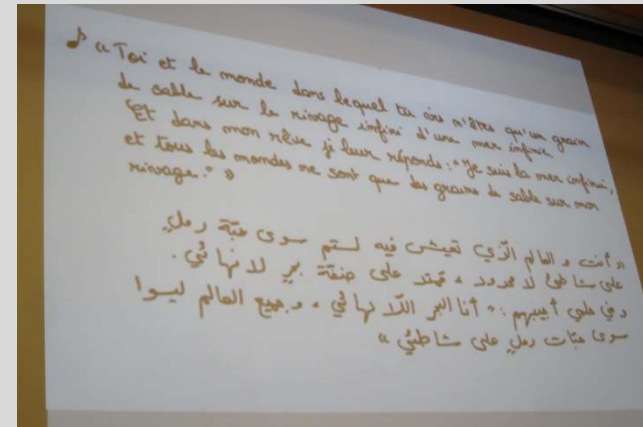 « Toi et le monde dans lequel tu vis n'êtes qu'un grain
de sable sur le rivage infini d'une mer infinie.
Et dans mon rêve je leur réponds : " Je suis la mer infinie,
et tous les mondes ne sont que des grains de sable sur mon
rivage. " »
« أنت و العالم الّذي تعيش فيه لستم سوى حبّة رملٍ
على شاطئ لا محدود ، تمتد على ضفّة بحرٍ لا نهائي .
وفي حلمي أجيبهم : " أنا البحر اللّا نهائي ، و جميع العالم ليسوا
سوى حبّات رملٍ على شاطئي »